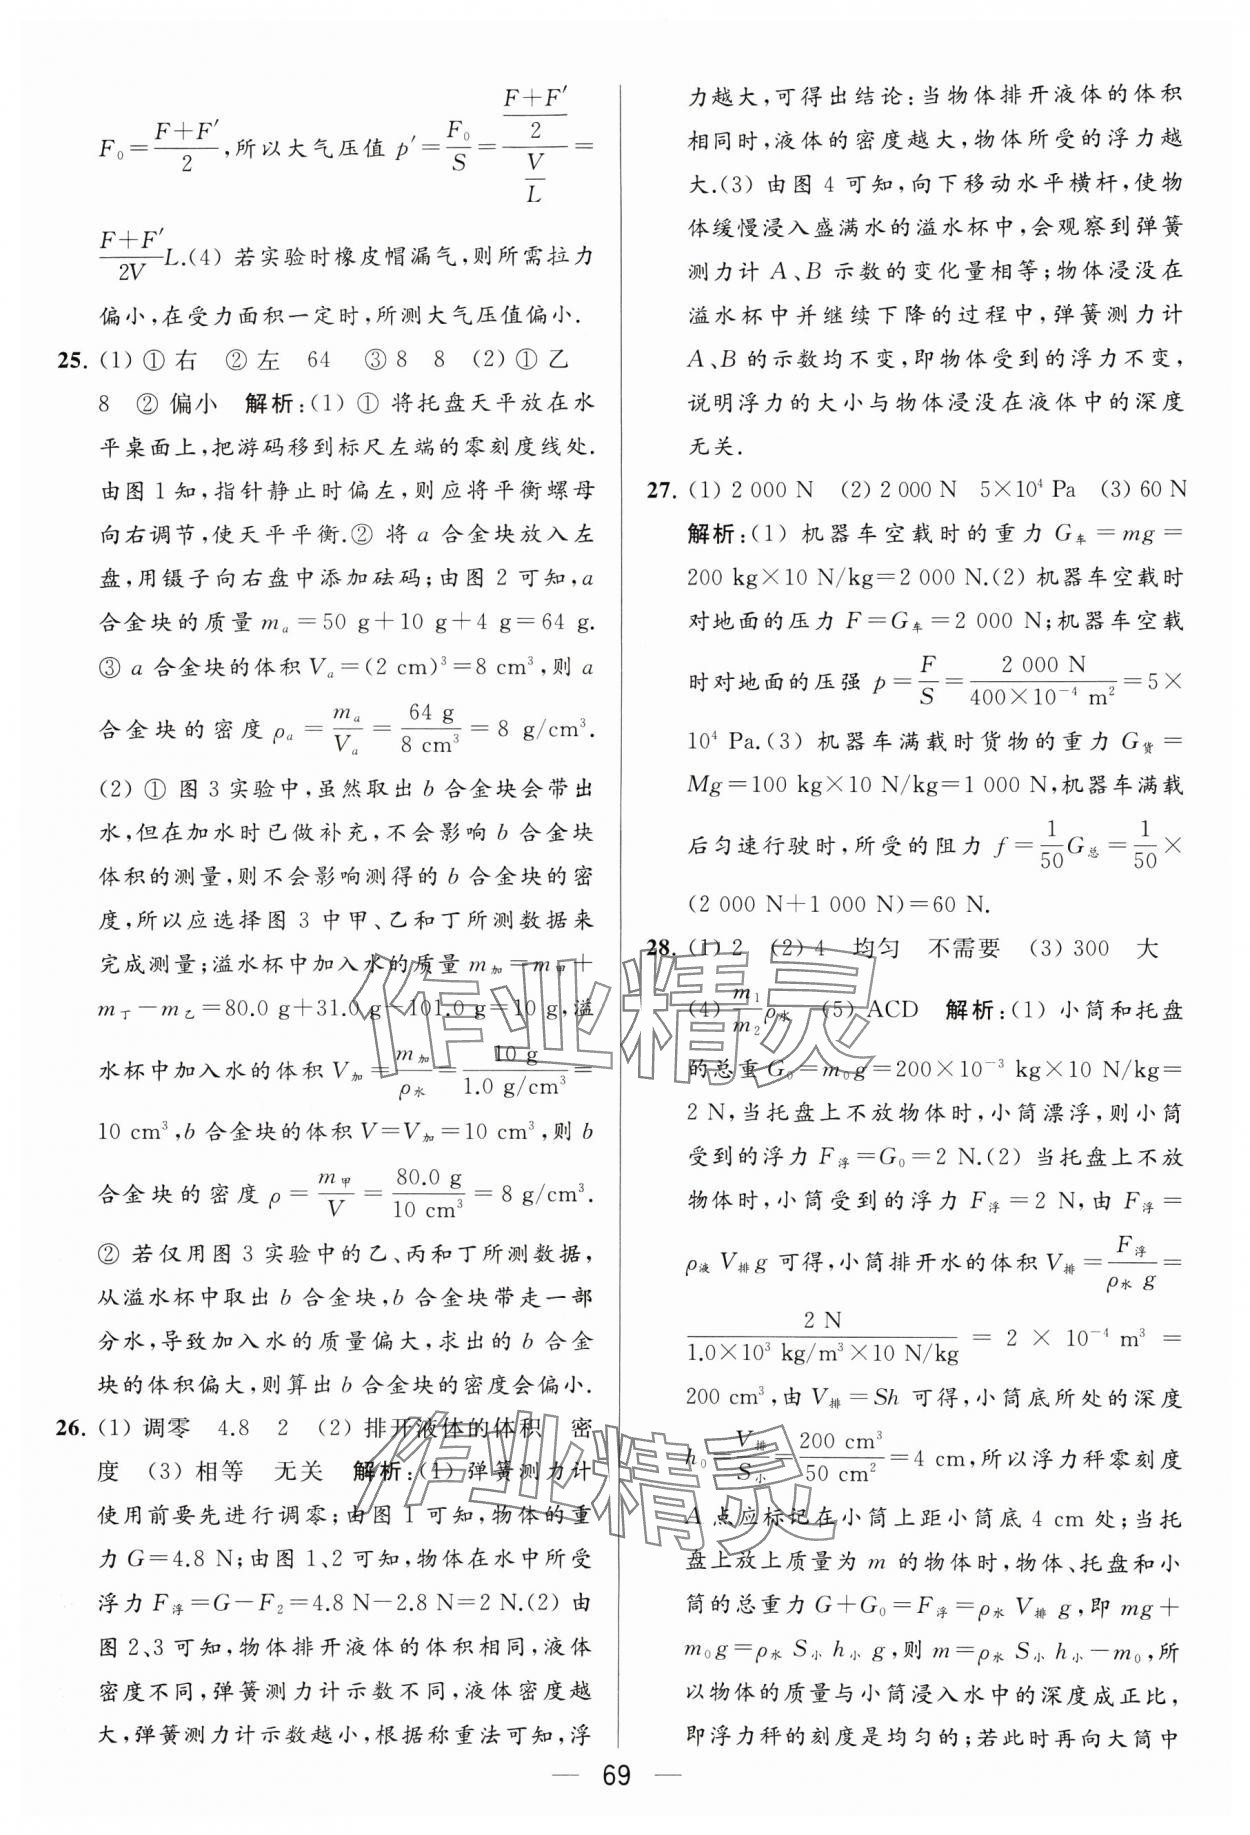 F₀=(F+F′)/2,所以大气压值 p′=F₀/S=((F+F′)/2)/(V/L)=
(F+F′)/(2V)L.(4) 若实验时橡皮帽漏气,则所需拉力
偏小,在受力面积一定时,所测大气压值偏小.
25. (1) ① 右 ② 左 64 ③ 8 8 (2) ① 乙
8 ② 偏小 解析:(1) ① 将托盘天平放在水
平桌面上,把游码移到标尺左端的零刻度线处.
由图 1 知,指针静止时偏左,则应将平衡螺母
向右调节,使天平平衡.② 将 a 合金块放入左
盘,用镊子向右盘中添加砝码;由图 2 可知,a
合金块的质量 mₐ=50 g+10 g+4 g=64 g.
③ a 合金块的体积 Vₐ=(2 cm)³=8 cm³,则 a
合金块的密度 ρₐ=mₐ/Vₐ=64 g/8 cm³=8 g/cm³.
(2) ① 图 3 实验中,虽然取出 b 合金块会带出
水,但在加水时已做补充,不会影响 b 合金块
体积的测量,则不会影响测得的 b 合金块的密
度,所以应选择图 3 中甲、乙和丁所测数据来
完成测量;溢水杯中加入水的质量 m加=m甲+
m丁−m乙=80.0 g+31.0 g−101.0 g=10 g,溢
水杯中加入水的体积 V加=m加/ρ水=10 g/1.0 g/cm³=
10 cm³,b 合金块的体积 V=V加=10 cm³,则 b
合金块的密度 ρ=m甲/V=80.0 g/10 cm³=8 g/cm³.
② 若仅用图 3 实验中的乙、丙和丁所测数据,
从溢水杯中取出 b 合金块,b 合金块带走一部
分水,导致加入水的质量偏大,求出的 b 合金
块的体积偏大,则算出 b 合金块的密度会偏小.
26. (1) 调零 4.8 2 (2) 排开液体的体积 密
度 (3) 相等 无关 解析:(1) 弹簧测力计
使用前要先进行调零;由图 1 可知,物体的重
力 G=4.8 N;由图 1、2 可知,物体在水中所受
浮力 F浮=G−F₂=4.8 N−2.8 N=2 N.(2) 由
图 2、3 可知,物体排开液体的体积相同,液体
密度不同,弹簧测力计示数不同,液体密度越
大,弹簧测力计示数越小,根据称重法可知,浮
力越大,可得出结论:当物体排开液体的体积
相同时,液体的密度越大,物体所受的浮力越
大.(3) 由图 4 可知,向下移动水平横杆,使物
体缓慢浸入盛满水的溢水杯中,会观察到弹簧
测力计 A、B 示数的变化量相等;物体浸没在
溢水杯中并继续下降的过程中,弹簧测力计
A、B 的示数均不变,即物体受到的浮力不变,
说明浮力的大小与物体浸没在液体中的深度
无关.
27. (1) 2 000 N (2) 2 000 N 5×10⁴ Pa (3) 60 N
解析:(1) 机器车空载时的重力 G车=mg=
200 kg×10 N/kg=2 000 N.(2) 机器车空载时
对地面的压力 F=G车=2 000 N;机器车空载
时对地面的压强 p=F/S=2 000 N/400×10⁻⁴ m²=5×
10⁴ Pa.(3) 机器车满载时货物的重力 G货=
Mg=100 kg×10 N/kg=1 000 N,机器车满载
后匀速行驶时,所受的阻力 f=1/50 G总=1/50×
(2 000 N+1 000 N)=60 N.
28. (1) 2 (2) 4 均匀 不需要 (3) 300 大
(4) m₁/m₂ ρ水 (5) ACD 解析:(1) 小筒和托盘
的总重 G₀=m₀g=200×10⁻³ kg×10 N/kg=
2 N,当托盘上不放物体时,小筒漂浮,则小筒
受到的浮力 F浮=G₀=2 N.(2) 当托盘上不放
物体时,小筒受到的浮力 F浮=2 N,由 F浮=
ρ液 V排 g 可得,小筒排开水的体积 V排=F浮/ρ水 g=
2 N/1.0×10³ kg/m³×10 N/kg=2×10⁻⁴ m³=
200 cm³,由 V排=Sh 可得,小筒底所处的深度
h₀=V排/S小=200 cm³/50 cm²=4 cm,所以浮力秤零刻度
A 点应标记在小筒上距小筒底 4 cm 处;当托
盘上放上质量为 m 的物体时,物体、托盘和小
筒的总重力 G+G₀=F浮=ρ水 V排 g,即 mg+
m₀g=ρ水 S小 h小 g,则 m=ρ水 S小 h小−m₀,所
以物体的质量与小筒浸入水中的深度成正比,
即浮力秤的刻度是均匀的;若此时再向大筒中
— 69 —
作业精灵
作业精灵